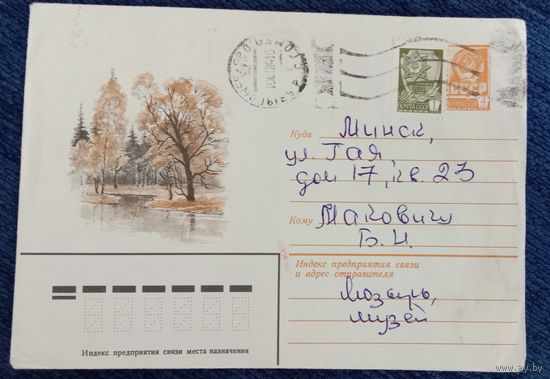 Куда Минск,
ул. Гая,
дом 17, кв. 23
Кому Маковичу
Б. Н.
Индекс предприятия связи
и адрес отправителя
Мозырь,
музей
Индекс предприятия связи места назначения
www.ay.by